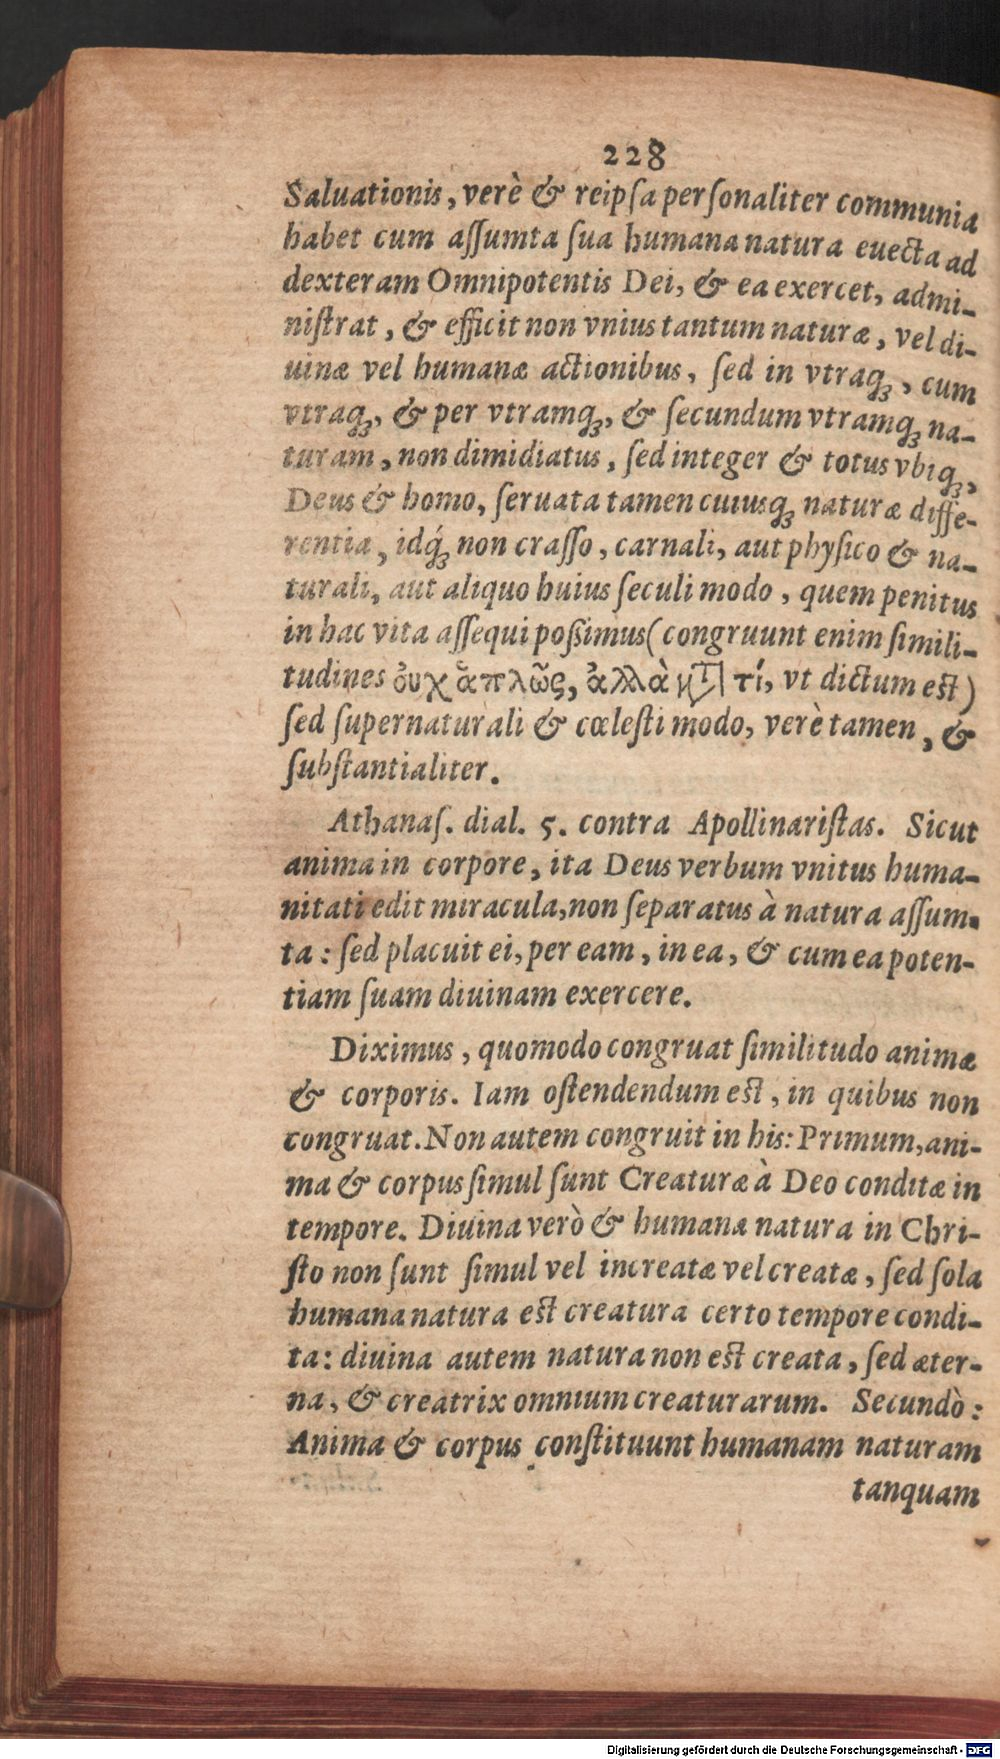 228
Saluationis, verè & reipſa perſonaliter communia
habet cum aſſumta ſua humana natura euecta ad
dexteram Omnipotentis Dei, & ea exercet, admi-
niſtrat, & efficit non vnius tantum naturæ, vel di-
uinæ vel humanæ actionibus, ſed in vtraq;, cum
vtraq;, & per vtramq;, & ſecundum vtramq; na-
turam, non dimidiatus, ſed integer & totus vbiq;,
Deus & homo, ſeruata tamen cuiusq; naturæ diffe-
rentia, idq́; non craſſo, carnali, aut phyſico & na-
turali, aut aliquo huius ſeculi modo, quem penitus
in hac vita aſſequi poßimus (congruunt enim ſimili-
tudines οὐχ ἁπλῶς, ἀλλὰ κτ τί, vt dictum eſt)
ſed ſupernaturali & cœleſti modo, verè tamen, &
ſubſtantialiter.
Athanaſ. dial. 5. contra Apollinariſtas. Sicut
anima in corpore, ita Deus verbum vnitus huma-
nitati edit miracula, non ſeparatus à natura aſſum-
ta: ſed placuit ei, per eam, in ea, & cum ea poten-
tiam ſuam diuinam exercere.
Diximus, quomodo congruat ſimilitudo animæ
& corporis. Iam oſtendendum eſt, in quibus non
congruat. Non autem congruit in his: Primum, ani-
ma & corpus ſimul ſunt Creaturæ à Deo conditæ in
tempore. Diuina verò & humana natura in Chri-
ſto non ſunt ſimul vel increatæ vel creatæ, ſed ſola
humana natura eſt creatura certo tempore condi-
ta: diuina autem natura non eſt creata, ſed æter-
na, & creatrix omnium creaturarum. Secundò:
Anima & corpus conſtituunt humanam naturam
tanquam
Digitalisierung gefördert durch die Deutsche Forschungsgemeinschaft - DFG